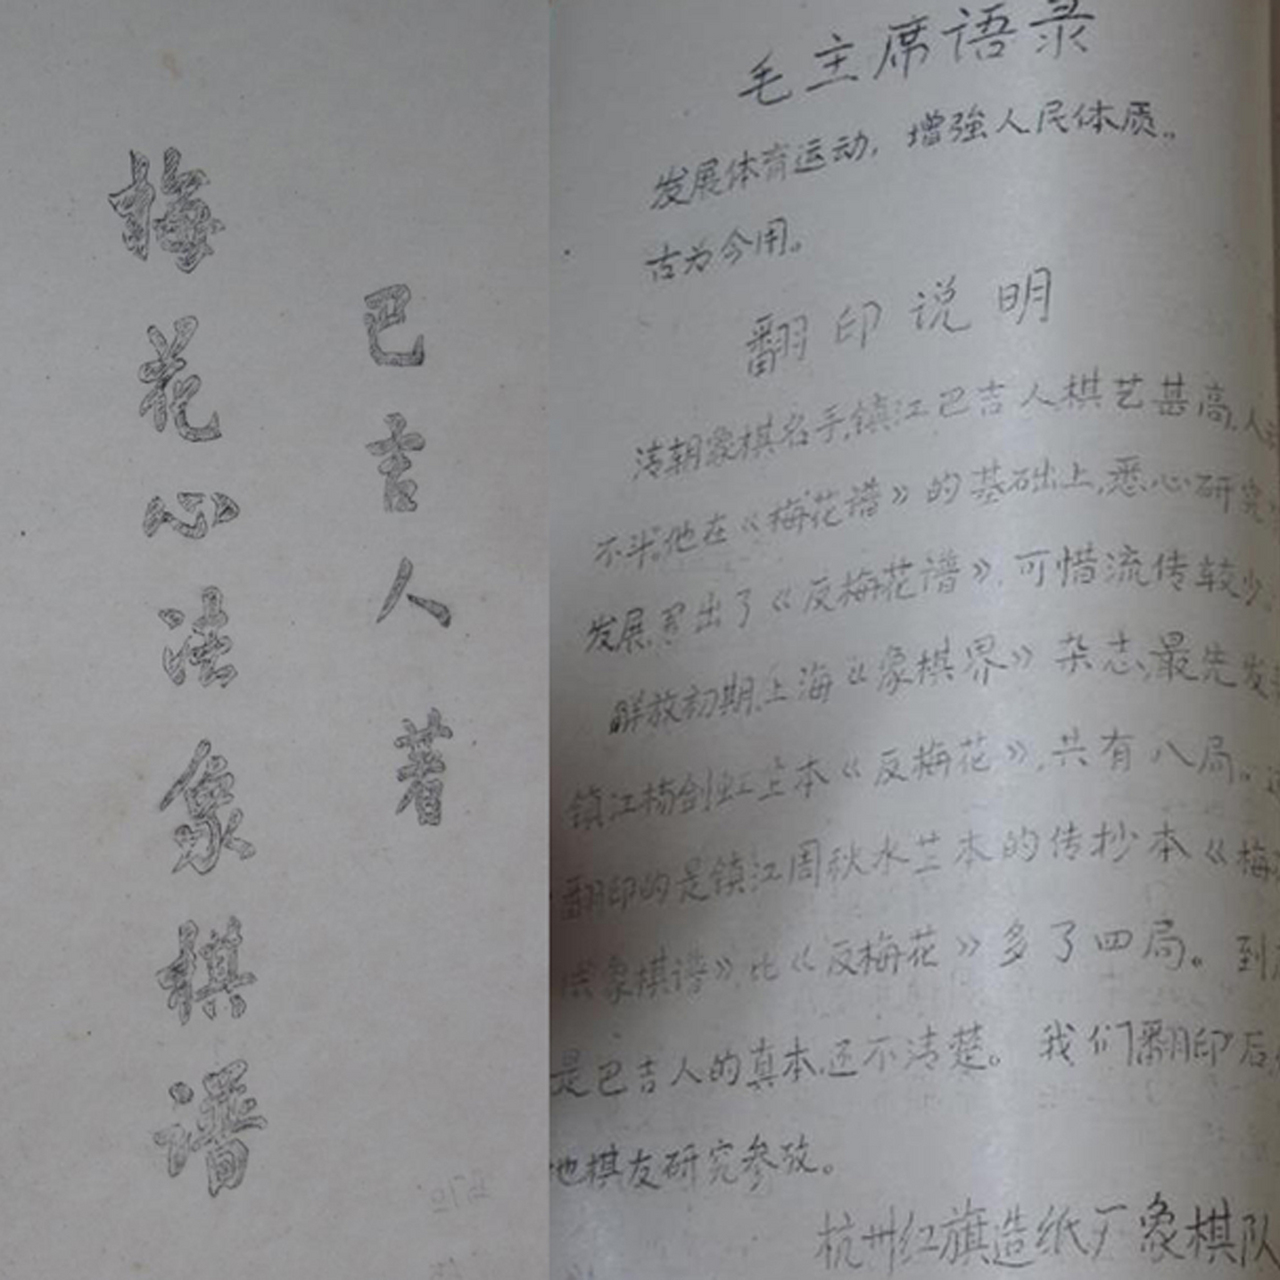 梅花心法象棋谱
巴吉人著
毛主席语录
发展体育运动，增強人民体质。
古为今用。
翻印说明
清朝象棋名手，镇江巴吉人棋艺甚高，人
不半。他在《梅花谱》的基础上，悉心研究
发展，写出了《反梅花谱》，可惜流传较少
解放初期，上海《象棋界》杂志，最先发
镇江杨剑虹本《反梅花》，共有八局。
翻印的是镇江周秋水本的传抄本《梅
象棋谱》，比《反梅花》多了四局。到
是巴吉人的真本，还不清楚。我们翻印后
地棋友研究参攷。
杭州红旗造纸厂象棋队